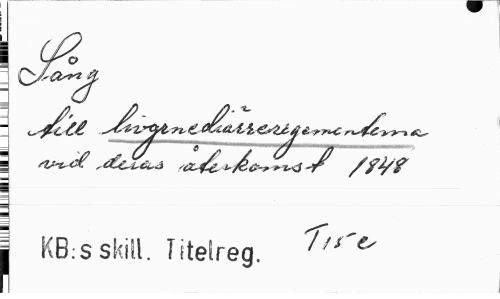 Sång
till livgrnediärregementerna
vid deras återkomst 1848
KB:s skill. Titelreg. T15e